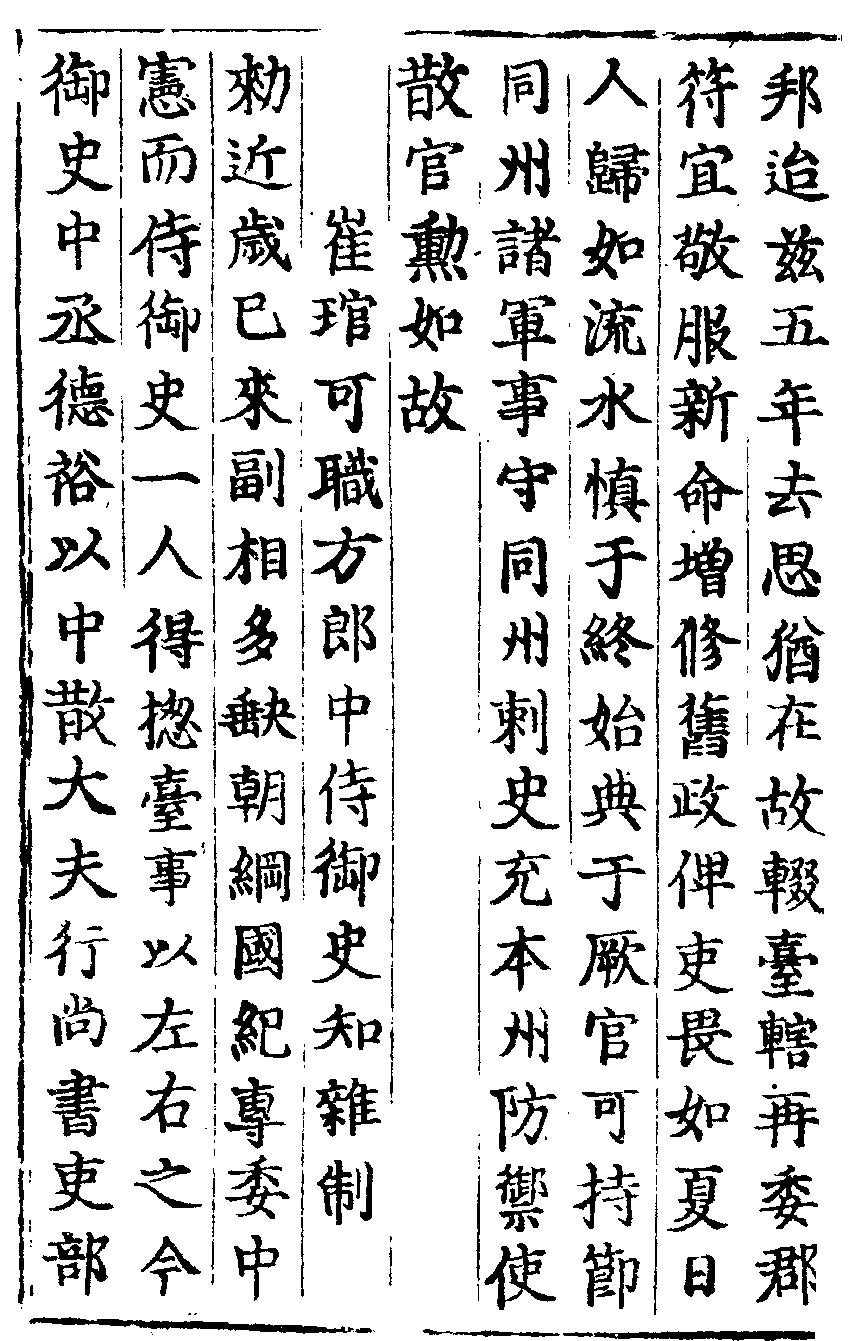 邦迨兹五年去思猶在故輟臺轄再委郡
符宜敬服新命增修舊政俾吏畏如夏日
人歸如流水慎于終始典于厥官可持節
同州諸軍事守同州刺史充本州防禦使
散官勲如故
崔琯可職方郎中侍御史知雜制
勑近歲已來副相多缺朝綱國紀專委中
憲而侍御史一人得揔臺事以左右之今
御史中丞德裕以中散大夫行尚書吏部